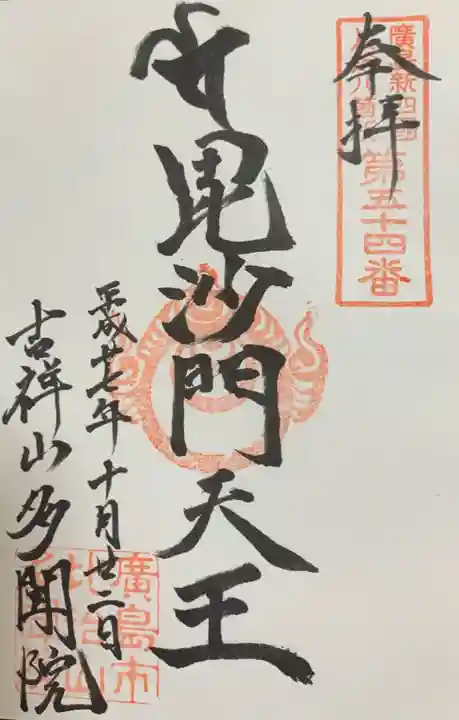 奉拝
廣島新四国
八十八ヶ所
第五十四番
毘沙門天王
平成廿七年十月廿二日
吉祥山多聞院
廣島市
比治山